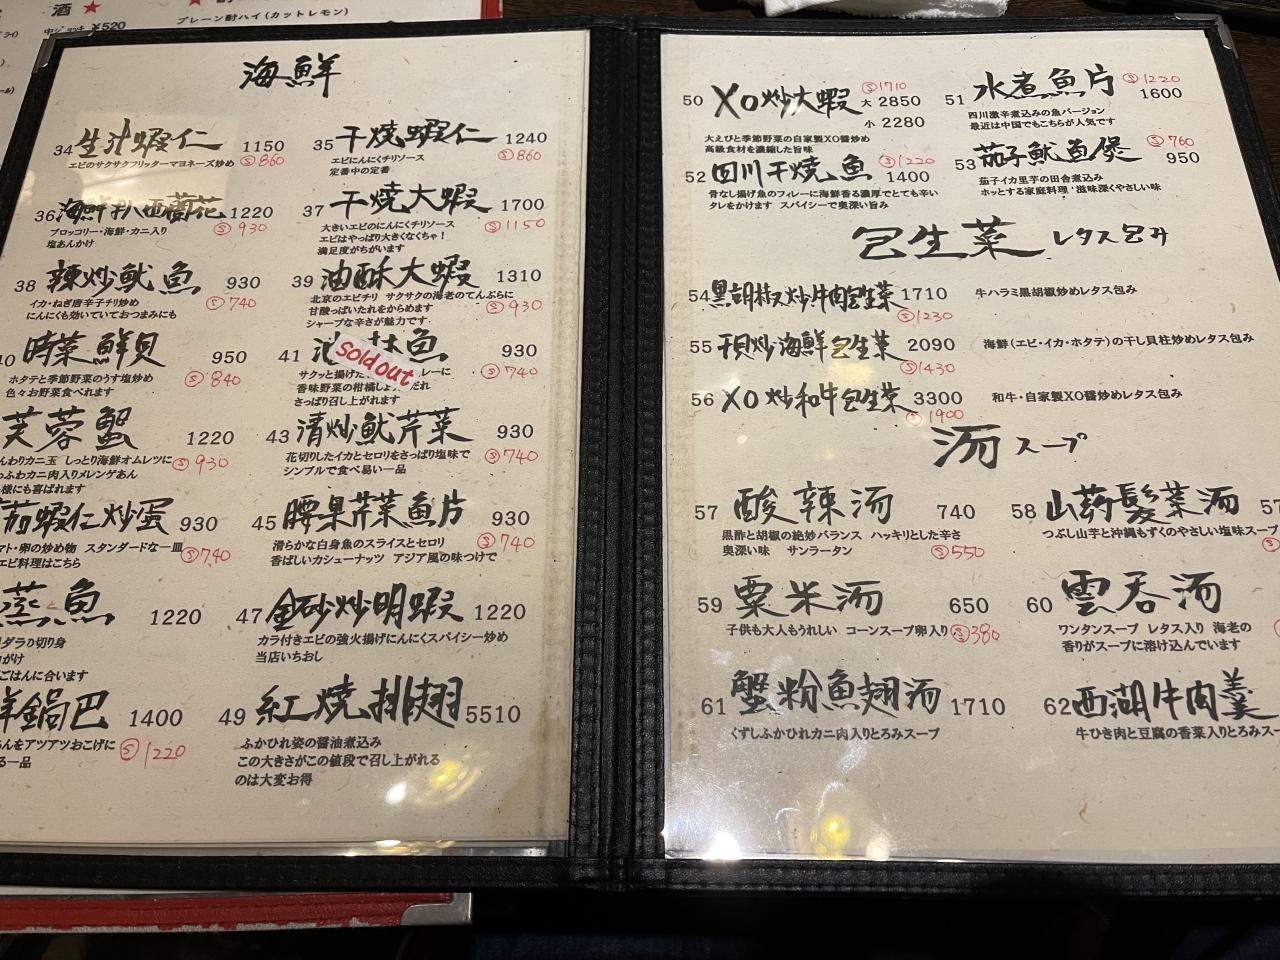 酒 ★
中ジョッキ ¥520
プレーン酎ハイ(カットレモン)
海鮮
34 生汁蝦仁 1150
Ⓢ860
エビのサクサクフリッターマヨネーズ炒め
35 干焼蝦仁 1240
Ⓢ860
エビにんにくチリソース
定番中の定番
36 海鮮扒西蘭花 1220
Ⓢ930
ブロッコリー・海鮮・カニ入り
塩あんかけ
37 干焼大蝦 1700
Ⓢ1150
大きいエビのにんにくチリソース
エビはやっぱり大きくなくちゃ!
満足度がちがいます
38 辣炒魷魚 930
Ⓢ740
イカ・ねぎ唐辛子チリ炒め
にんにくも効いていておつまみにも
39 油酥大蝦 1310
Ⓢ930
北京のエビチリ サクサクの海老のてんぷらに
甘酸っぱいたれをからめます
シャープな辛さが魅力です.
40 時菜鮮貝 950
Ⓢ840
ホタテと季節野菜のうす塩炒め
色々お野菜食べれます
41 魚 930
Sold out
Ⓢ740
サクッと揚げた レーに
香味野菜の柑橘し だれ
さっぱり召し上がれます
芙蓉蟹 1220
Ⓢ930
んわりカニ玉 しっとり海鮮オムレツに
わふわカニ肉入りメレンゲあん
様にも喜ばれます
43 清炒魷芹菜 930
Ⓢ740
花切りしたイカとセロリをさっぱり塩味で
シンプルで食べ易い一品
茄蝦仁炒蛋 930
Ⓢ740
マト・卵の炒め物 スタンダードな一皿
エビ料理はこちら
45 腰果芹菜魚片 930
Ⓢ740
滑らかな白身魚のスライスとセロリ
香ばしいカシューナッツ アジア風の味つけで
蒸魚 1220
ダラの切り身
がけ
ごはんに合います
47 金砂炒明蝦 1220
カラ付きエビの強火揚げにんにくスパイシー炒め
当店いちおし
鮮鍋巴 1400
Ⓢ1220
んをアツアツおこげに
る一品
49 紅焼排翅 5510
ふかひれ姿の醤油煮込み
この大きさがこの値段で召し上がれる
のは大変お得
50 XO炒大蝦 Ⓢ1710
大 2850
小 2280
大えびと季節野菜の自家製XO醤炒め
高級食材を濃縮した旨味
51 水煮魚片 Ⓢ1220
1600
四川激辛煮込みの魚バージョン
最近は中国でもこちらが人気です
52 四川干焼魚 Ⓢ1220
1400
骨なし揚げ魚のフィレーに海鮮香る濃厚でとても辛い
タレをかけます スパイシーで奥深い旨み
53 茄子魷魚煲 Ⓢ760
950
茄子イカ里芋の田舎煮込み
ホッとする家庭料理 滋味深くやさしい味
包生菜 レタス包み
54 黒胡椒炒牛肉包生菜 1710 牛ハラミ黒胡椒炒めレタス包み
Ⓢ1230
55 干貝炒海鮮包生菜 2090 海鮮(エビ・イカ・ホタテ)の干し貝柱炒めレタス包み
Ⓢ1430
56 XO炒和牛包生菜 3300 和牛・自家製XO醤炒めレタス包み
Ⓢ1900
湯 スープ
57 酸辣湯 740
黒酢と胡椒の絶妙バランス ハッキリとした辛さ
奥深い味 サンラータン Ⓢ550
58 山薬髪菜湯 57
つぶし山芋と沖縄もずくのやさしい塩味スープ
59 粟米湯 650
子供も大人もうれしい コーンスープ卵入り Ⓢ380
60 雲呑湯
ワンタンスープ レタス入り 海老の
香りがスープに溶け込んでいます
61 蟹粉魚翅湯 1710
くずしふかひれカニ肉入りとろみスープ
62 西湖牛肉羹
牛ひき肉と豆腐の香菜入りとろみスー